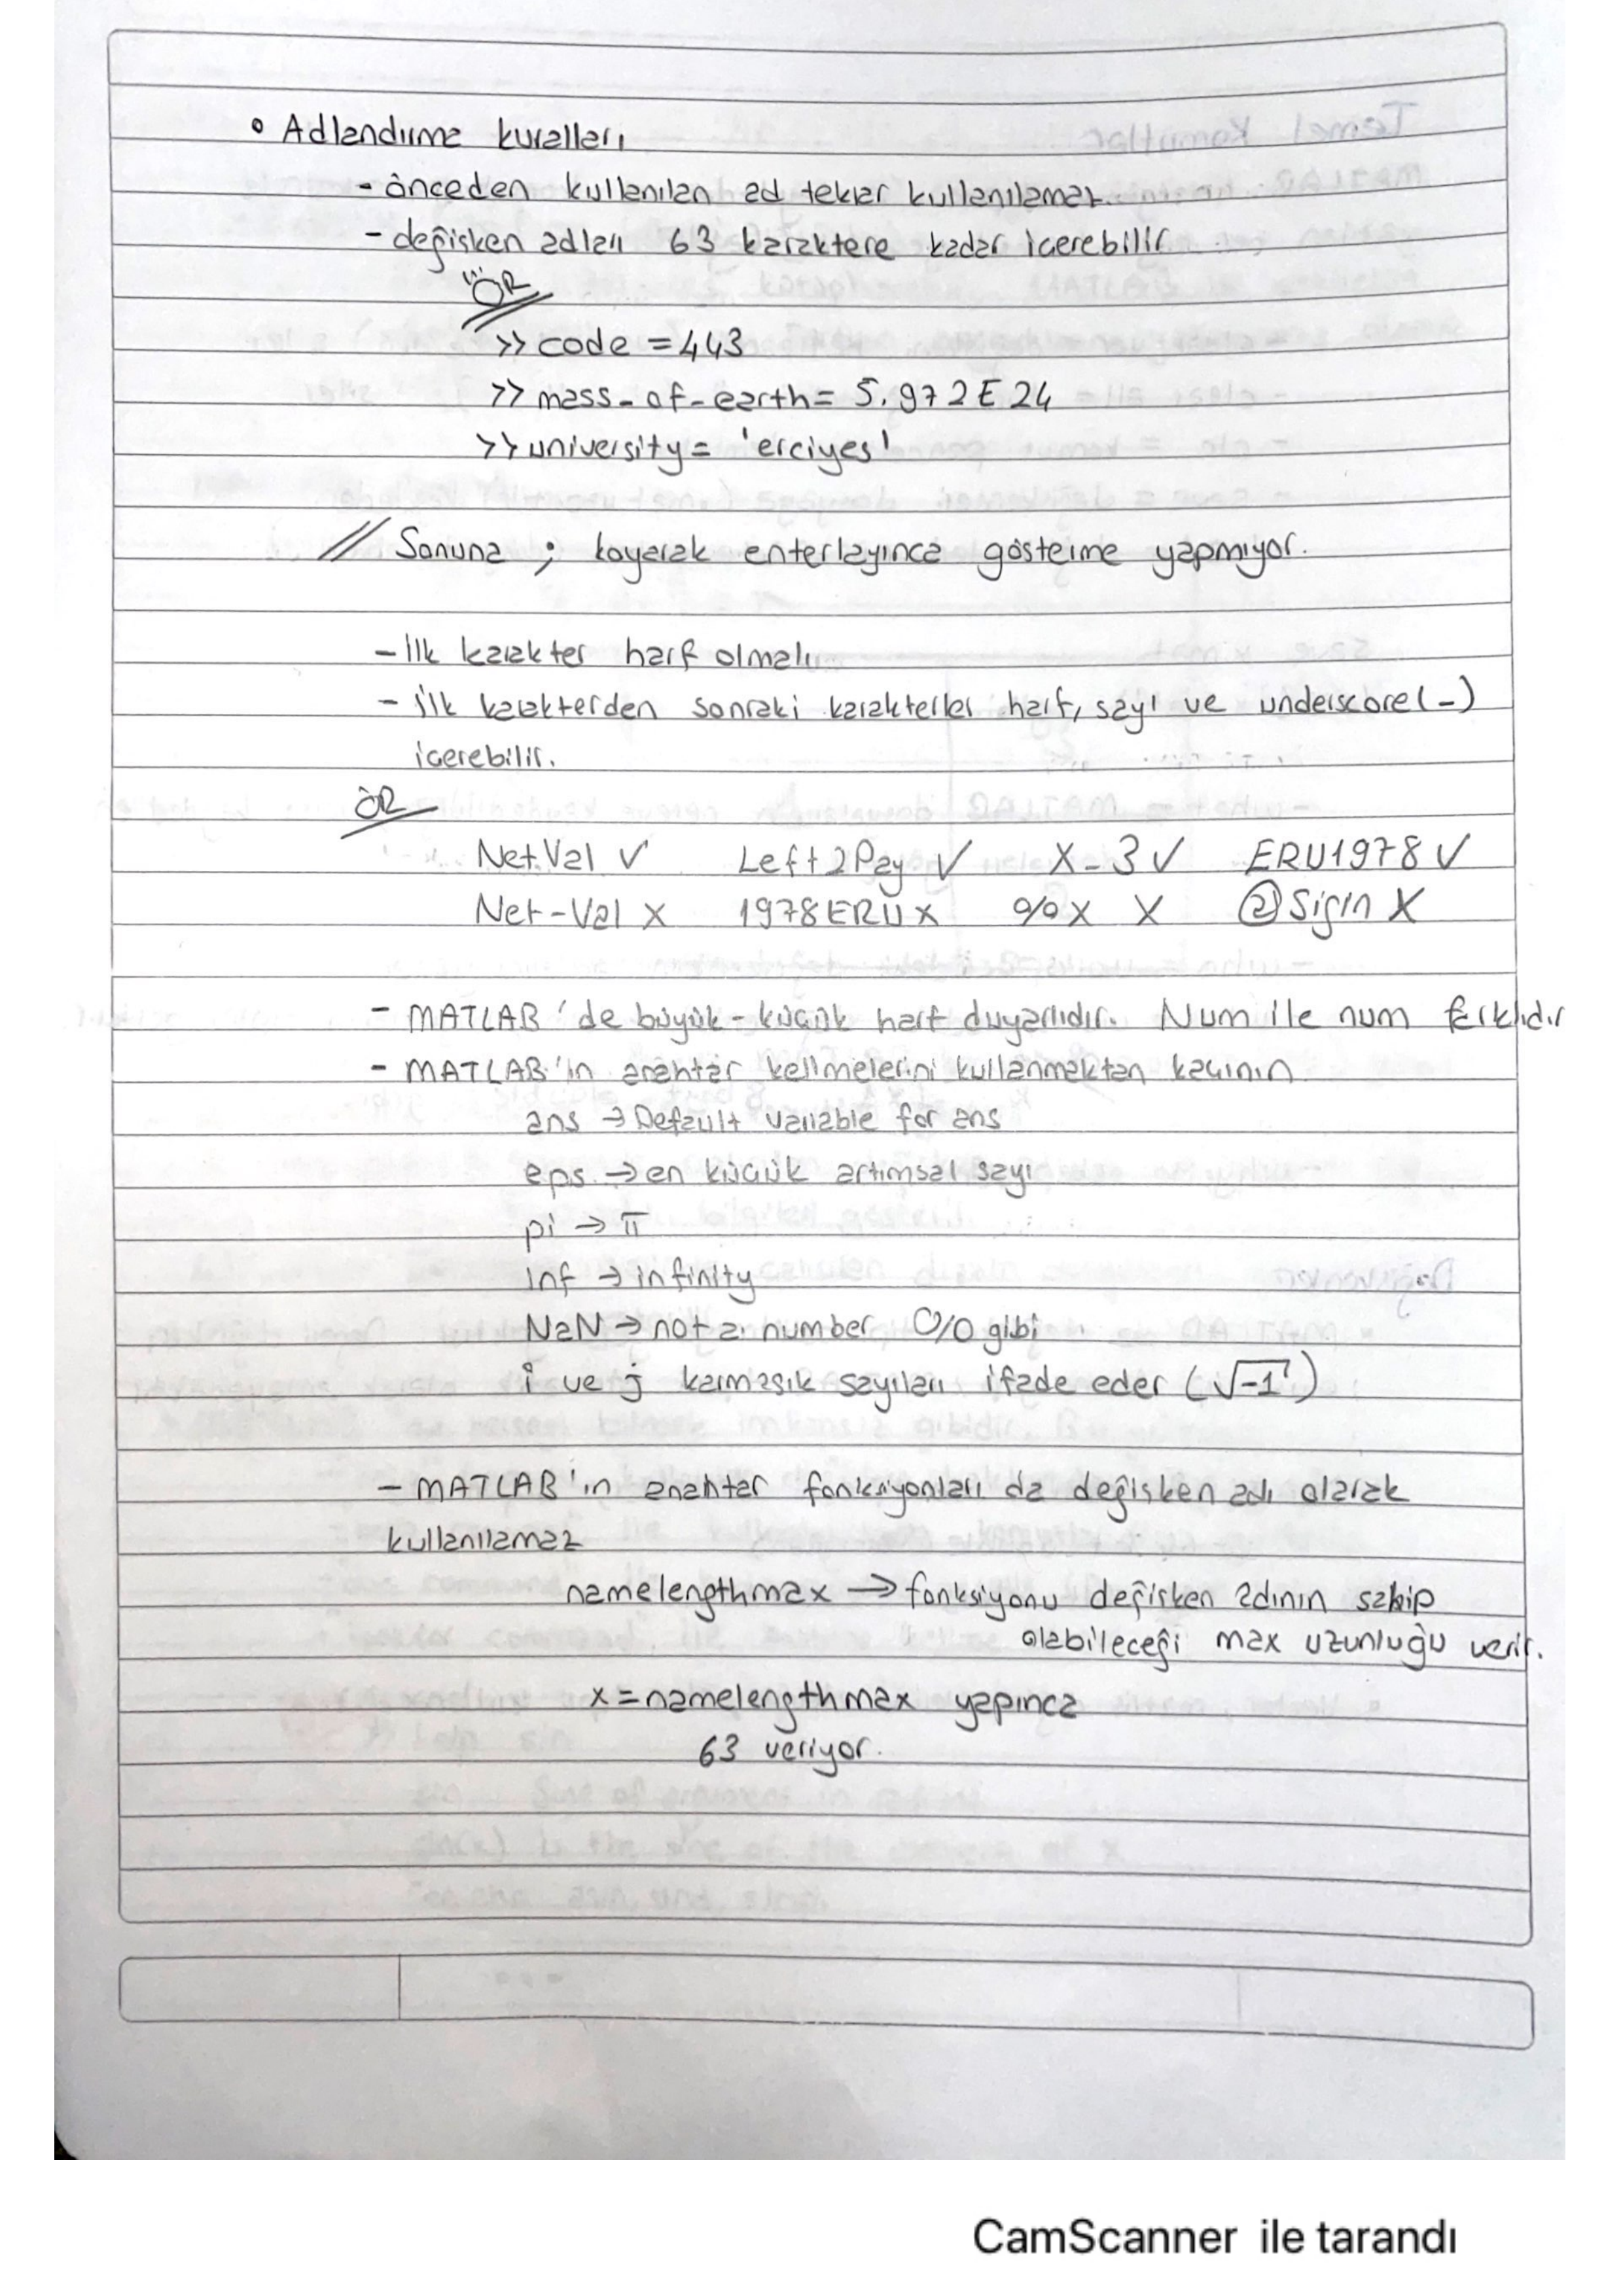 • Adlandırma kuralları
- önceden kullanılan ad tekrar kullanılamaz.
- değişken adları 63 karaktere kadar içerebilir
ÖR
>> code = 443
>> mass_of_earth = 5.972E24
>> university = 'erciyes'
// Sonuna ; koyarak enterlayınca gösterme yapmıyor.
- İlk karakter harf olmalı
- ilk karakterden sonraki karakterler harf, sayı ve underscore(_)
içerebilir.
ÖR
NetVal ✓ Left2Pay ✓ X_3 ✓ ERU1978 ✓
Net-Val X 1978ERU X %X X @Sigin X
- MATLAB'de büyük-küçük harf duyarlıdır. Num ile num farklıdır
- MATLAB'ın anahtar kelimelerini kullanmaktan kaçının
ans → Default variable for ans
eps → en küçük artımsal sayı
pi → π
inf → infinity
NaN → not a number 0/0 gibi
i ve j karmaşık sayıları ifade eder (√-1)
- MATLAB'ın anahtar fonksiyonları da değişken adı olarak
kullanılamaz
namelengthmax → fonksiyonu değişken adının sahip
olabileceği max uzunluğu verir.
x = namelengthmax yapınca
63 veriyor.
CamScanner ile tarandı